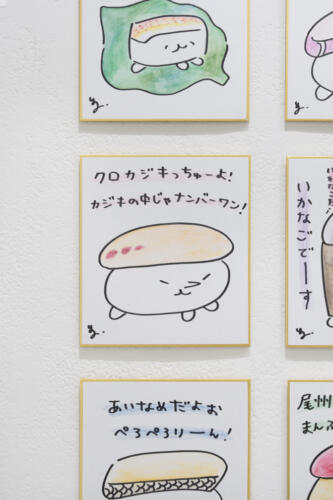 クロカジキっちゅーよ!
カジキの中じゃナンバーワン!
いかなごでーす
あいなめだよぉ
ぺろぺろりーん!
尾州
まんぷ